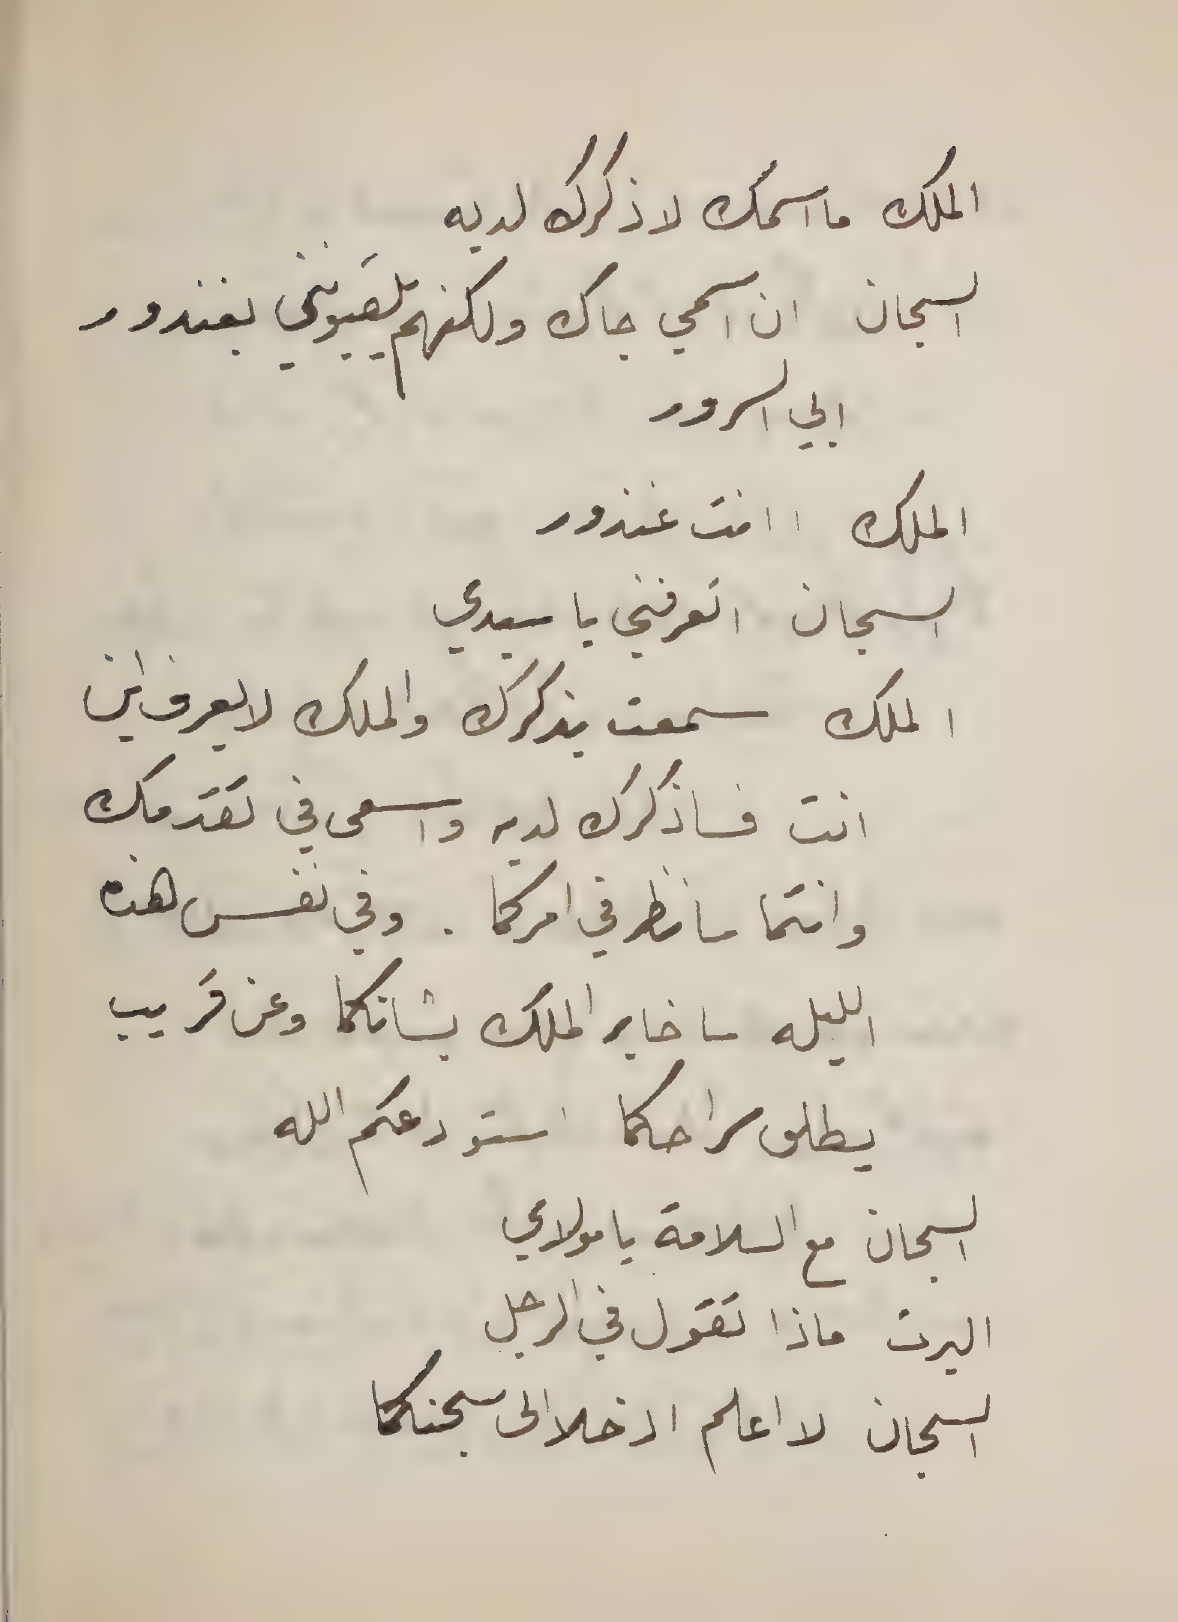 الملك ما اسمك لاذكرك لديه
السجان ان اسمي جاك ولكنهم يلقبونني بغندور
ابي السرور
الملك اانت غندور
السجان اتعرفني يا سيدي
الملك سمعت بذكرك والملك لا يعرف اين
انت فساذكرك لديه واسعى في تقدمك
وانتما سانظر في امركما . وفي نفس هذه
الليله ساخابر الملك بشانكما وعن قريب
يطلق سراحكما استودعكم الله
السجان مع السلامة يا مولاي
البرت ماذا تقول في الرجل
السجان لا اعلم ادخلا الى سجنكما